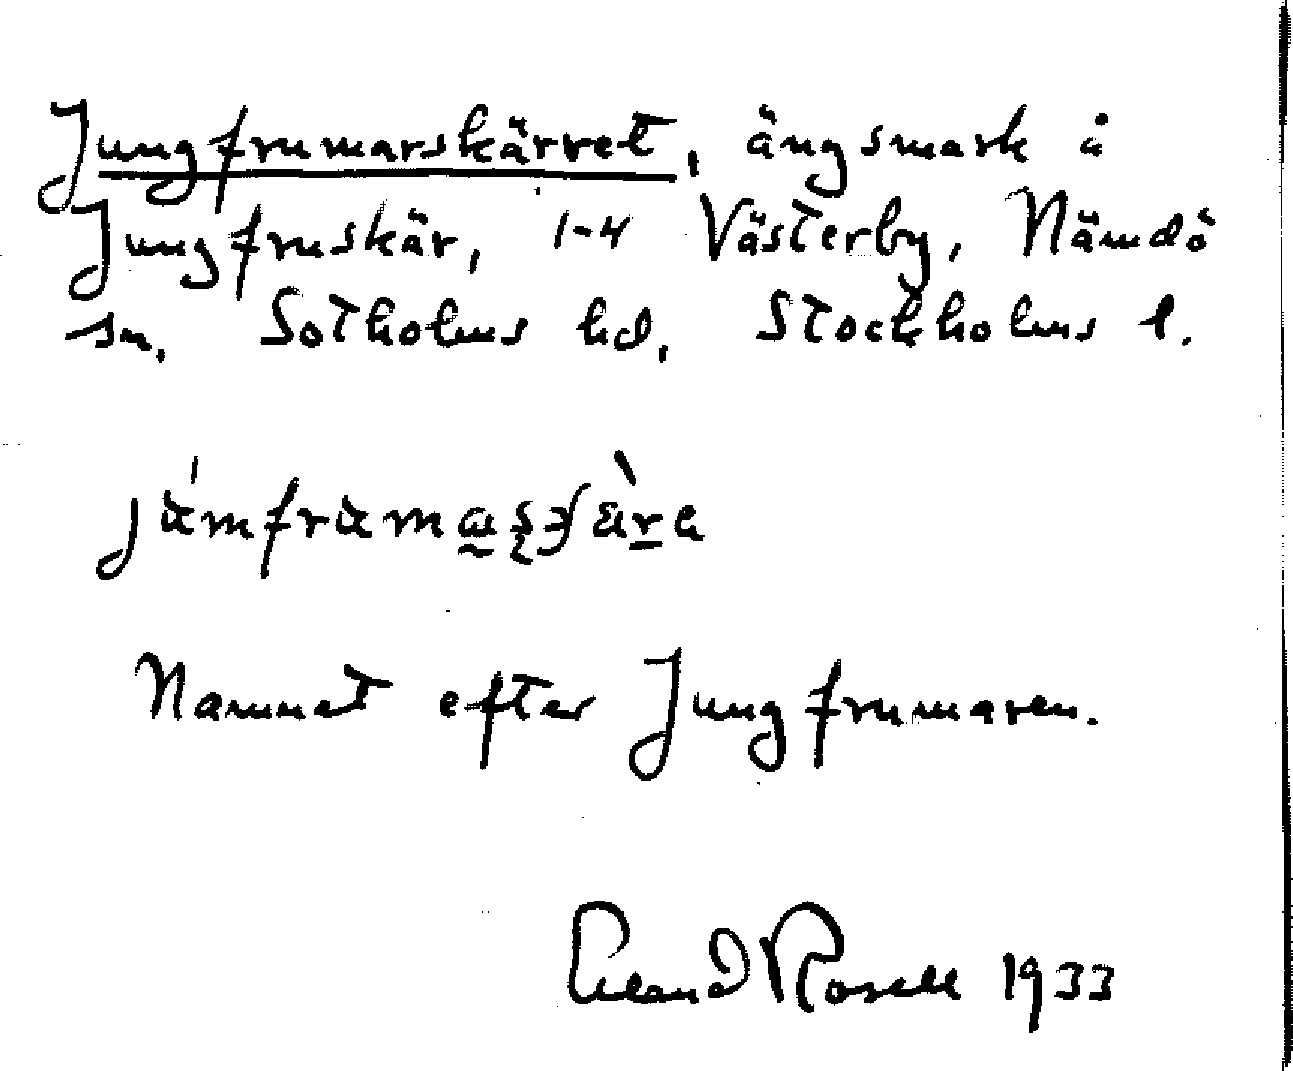 Jungfrumarskärret, ängsmark å
Jungfruskär, 1-4 Västerby, Nämdö
sn, Sotholms hd, Stockholms l.
Namnet efter Jungfrumaren.
Erland Rosell 1933